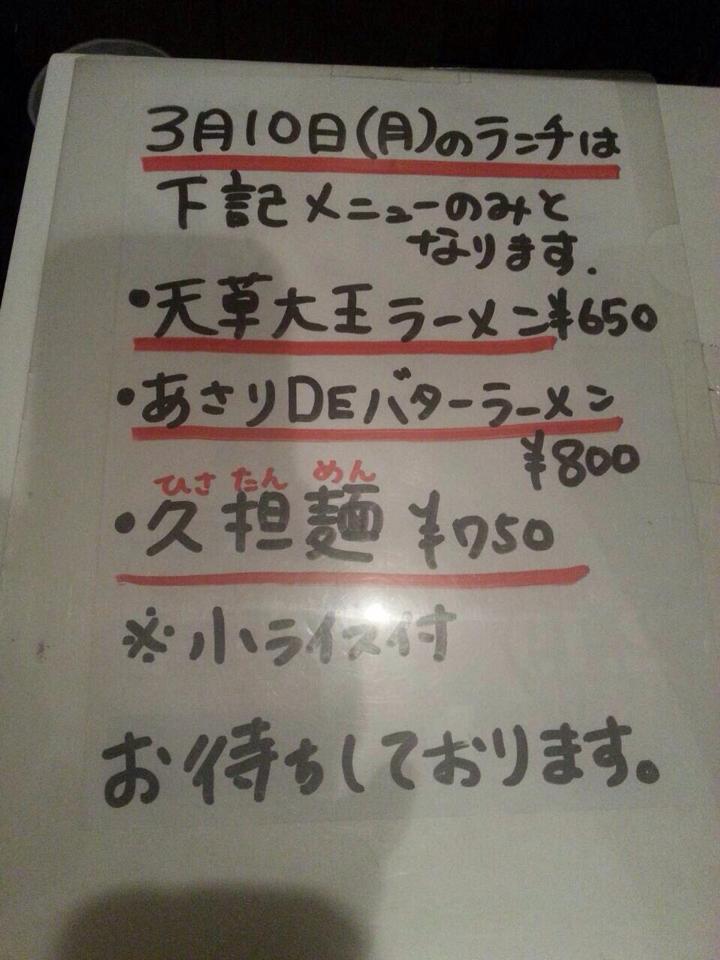 3月10日(月)のランチは
下記メニューのみと
なります.
・天草大王ラーメン¥650
・あさりDEバターラーメン
¥800
ひさ たん めん
・久担麺 ¥750
※小ライス付
お待ちしております。